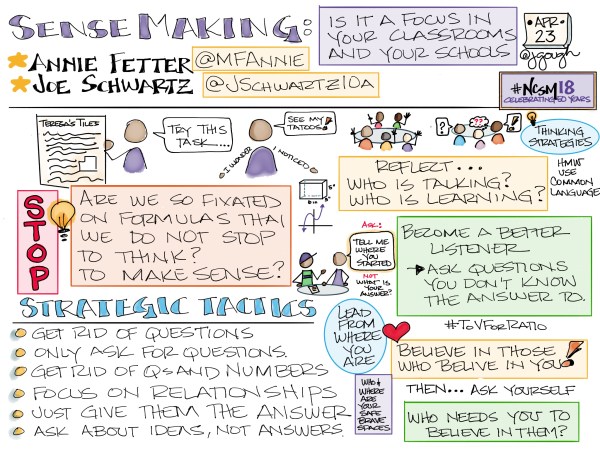 SENSE MAKING:
ANNIE FETTER
@MFANNIE
JOE SCHWARTZ
@JSCHWARTZ10A
IS IT A FOCUS IN
YOUR CLASSROOMS
AND YOUR SCHOOLS
APR
23
@jgough
#NCSM18
CELEBRATING 50 YEARS
TERESA'S TILES
TRY THIS
TASK....
SEE MY
TATOOS!
I WONDER
I NOTICED
THINKING
STRATEGIES
HMW
USE
COMMON
LANGUAGE
REFLECT...
WHO IS TALKING?
WHO IS LEARNING?
STOP
ARE WE SO FIXATED
ON FORMULAS THAT
WE DO NOT STOP
TO THINK?
TO MAKE SENSE?
ASK:
TELL ME
WHERE YOU
STARTED
NOT
WHAT IS
YOUR
ANSWER?
BECOME A BETTER
LISTENER
ASK QUESTIONS
YOU DON'T KNOW
THE ANSWER TO.
#TOVFORRATIO
STRATEGIC TACTICS
GET RID OF QUESTIONS
ONLY ASK FOR QUESTIONS.
GET RID OF QS AND NUMBERS
FOCUS ON RELATIONSHIPS
JUST GIVE THEM THE ANSWER
ASK ABOUT IDEAS, NOT ANSWERS.
LEAD
FROM
WHERE
YOU
ARE
WHO &
WHERE
ARE
YOUR
SAFE
BRAVE
SPACES
BELIEVE IN THOSE
WHO BELIVE IN YOU
THEN... ASK YOURSELF
WHO NEEDS YOU TO
BELIEVE IN THEM?